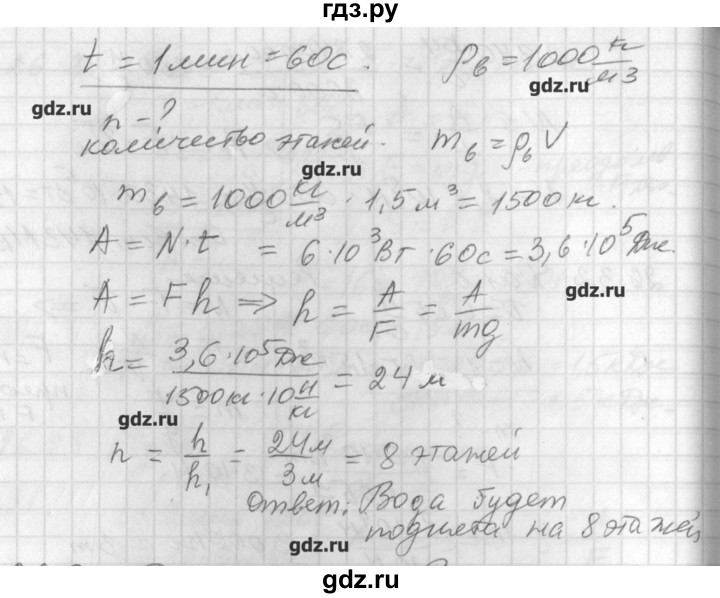 гдз.ру
t = 1 мин = 60с. ρв = 1000 кг/м3
gdz.ru
gdz.ru
n - ?
количество этажей. mв = ρв V
gdz.ru
mв = 1000 кг/м3 · 1,5 м3 = 1500 кг.
A = N·t = 6·10^3 Вт · 60с = 3,6·10^5 Дж.
gdz.ru
A = Fh => h = A/F = A/mg
h = 3,6·10^5 Дж / 1500кг · 10 Н/кг = 24 м
gdz.ru
n = h/h1 = 24м/3м = 8 этажей
Ответ: Вода будет
поднята на 8 этажей,
gdz.ru
gdz.ru